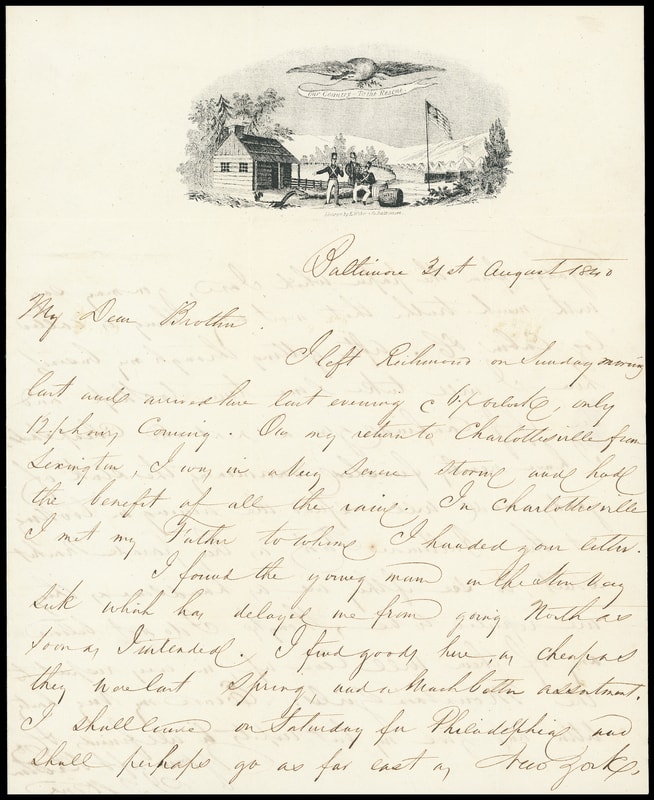 Our Country To the Rescue.
Baltimore 31st August 1840
My Dear Brother
I left Richmond on Sunday morning
last and arrived here last evening 6½ oclock, only
12½ hours Coming. On my return to Charlottesville from
Lexington, I was in a very severe storm and had
the benefit of all the rain. In Charlottesville
I met my Father to whom I handed your letter.
I found the young man in the Store very
sick which has delayed me from going North as
soon as I intended. I find goods here, as cheap as
they were last Spring, and a much better assortment.
I shall leave on Saturday for Philadelphia and
shall perhaps go as far east as New York,